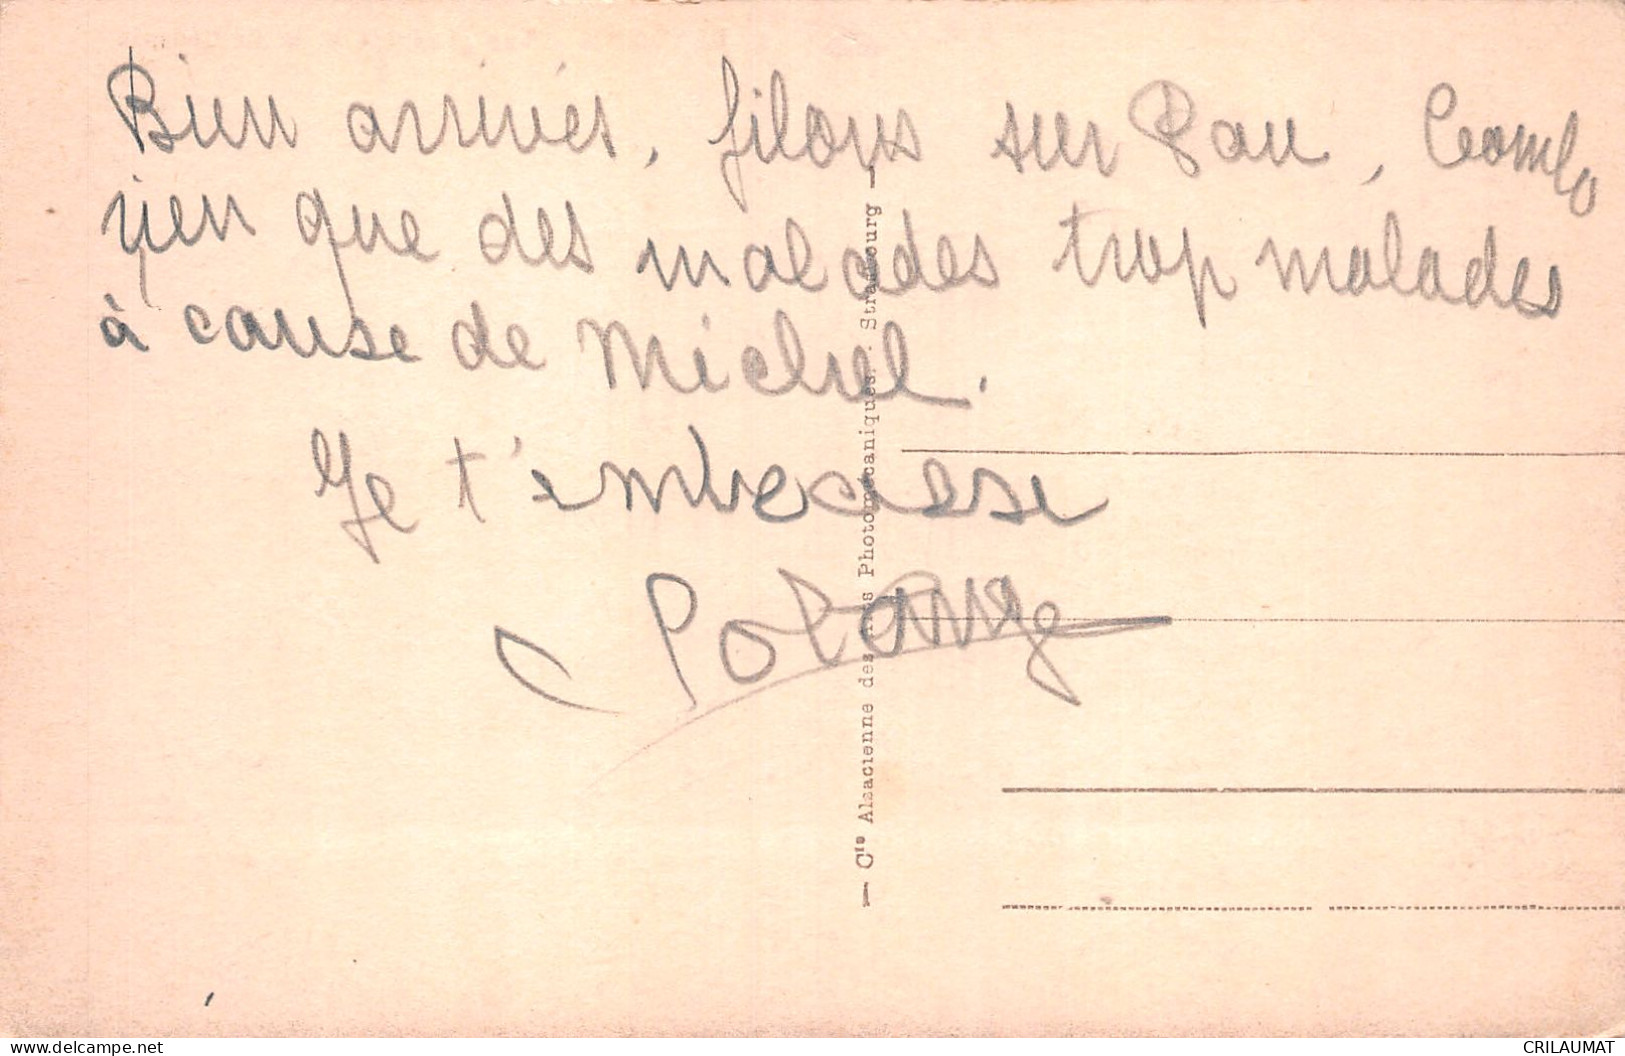 Bien arrivés, filons sur Pau, Cambo
rien que des malades trop malades
à cause de Michel.
Je t'embrasse
— Cie Alsacienne des Arts Photomécaniques. Strasbourg —
delcampe.net
CRILAUMAT